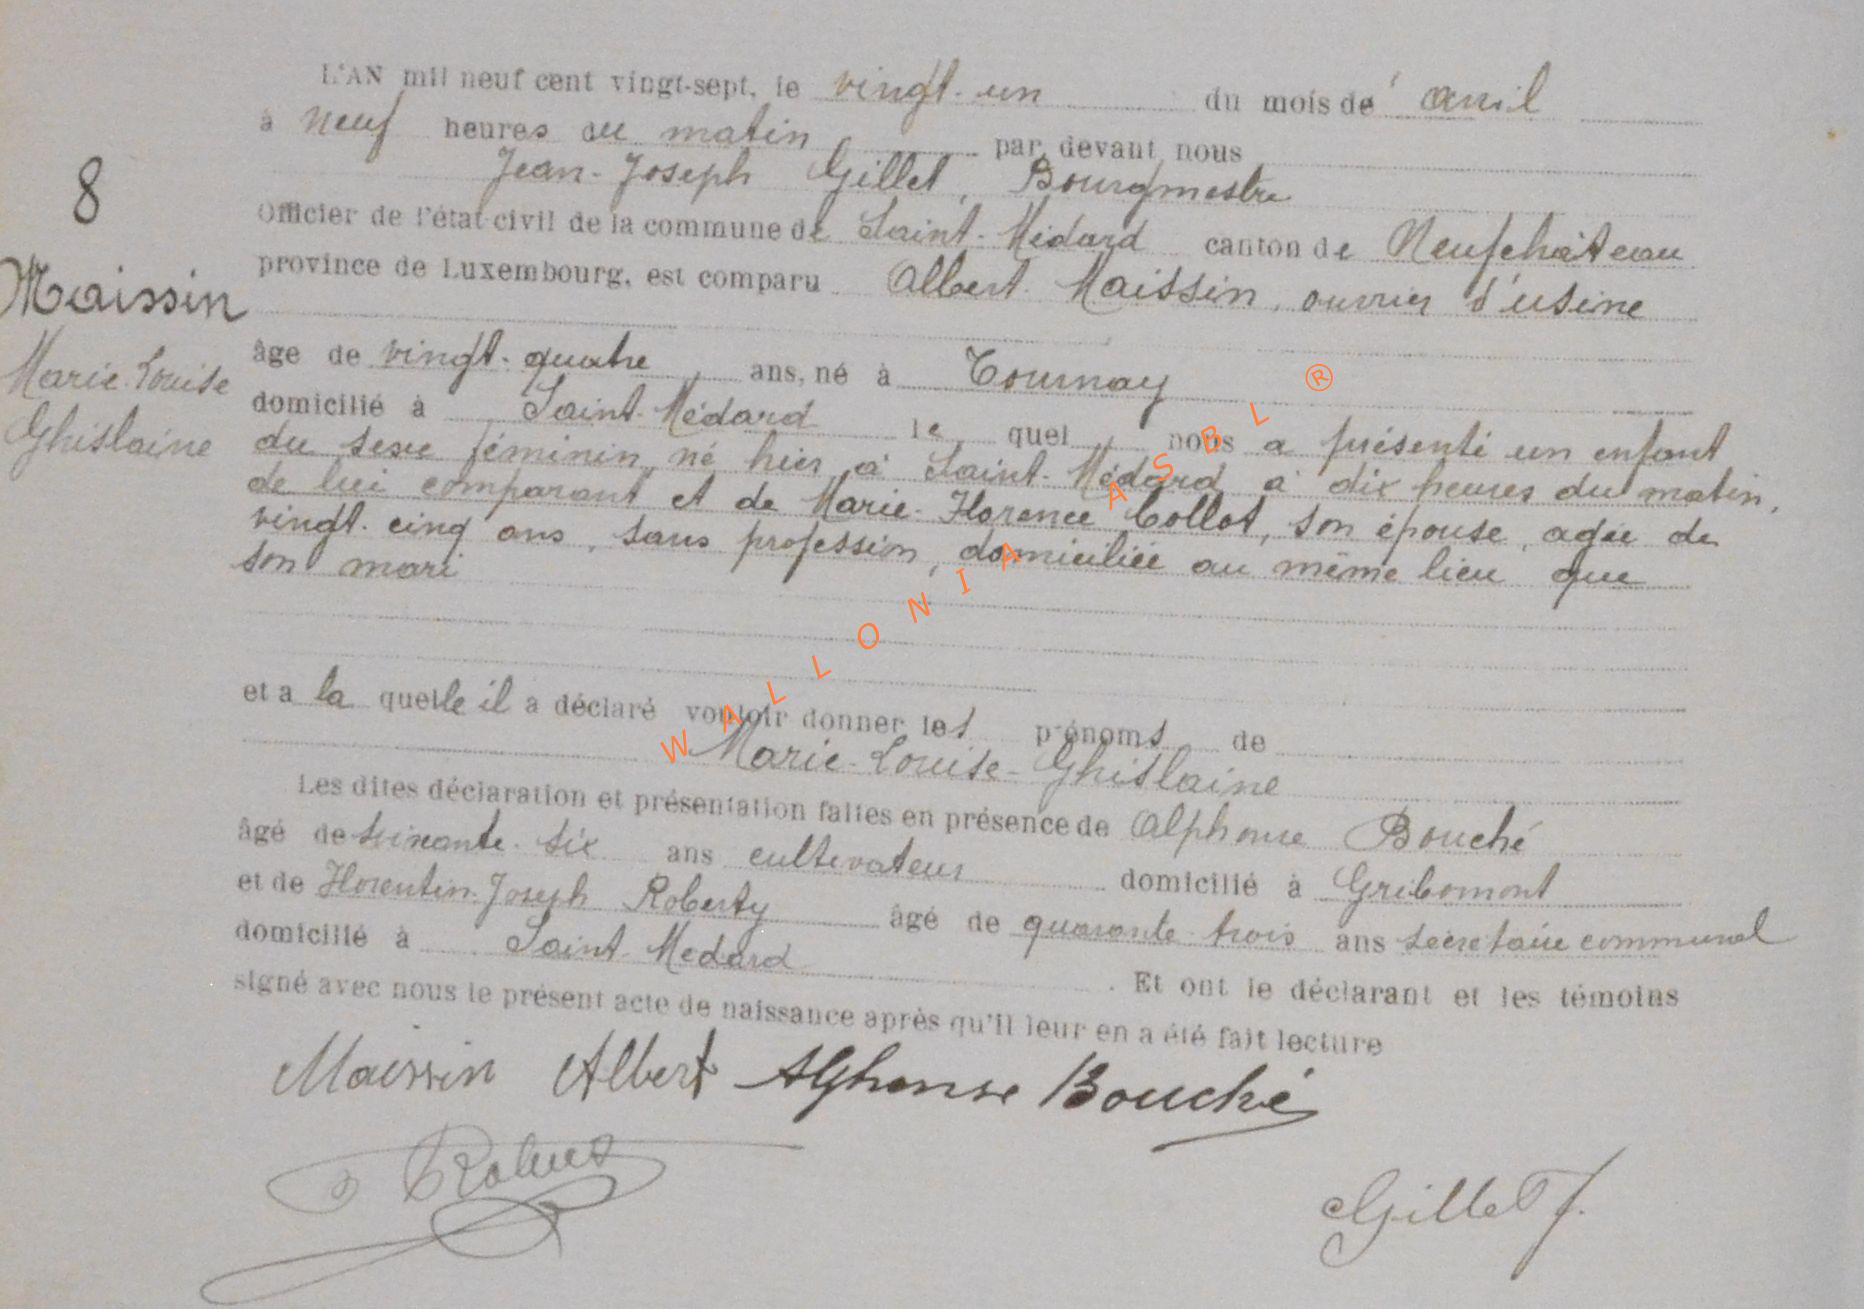 L'AN mil neuf cent vingt-sept, le vingt-un du mois de avril
à neuf heures du matin par devant nous
Jean-Joseph Gillet, Bourgmestre
8
Officier de l'état civil de la commune de Saint-Médard canton de Neufchâteau
province de Luxembourg, est comparu Albert Maissin, ouvrier d'usine
Maissin
Marie-Louise
Ghislaine
âge de vingt-quatre ans, né à Tournay
domicilié à Saint-Médard le quel, nous a présenté un enfant
du sexe féminin, né hier à Saint-Médard à dix heures du matin,
de lui comparant et de Marie-Florence Collot, son épouse, agée de
vingt-cinq ans, sans profession, domiciliée au même lieu que
son mari
et a la quelle il a déclaré vouloir donner les prénoms de
Marie-Louise-Ghislaine
Les dites déclaration et présentation faites en présence de Alphonse Bouché
âgé de soixante-six ans cultivateur domicilié à Gribomont
et de Florentin-Joseph Roberty âgé de quarante-trois ans secrétaire communal
domicilié à Saint-Medard . Et ont le déclarant et les témoins
signé avec nous le présent acte de naissance après qu'il leur en a été fait lecture
Maissin Albert Alphonse Bouché
Gillet J.
WALLONIA ASBL ®